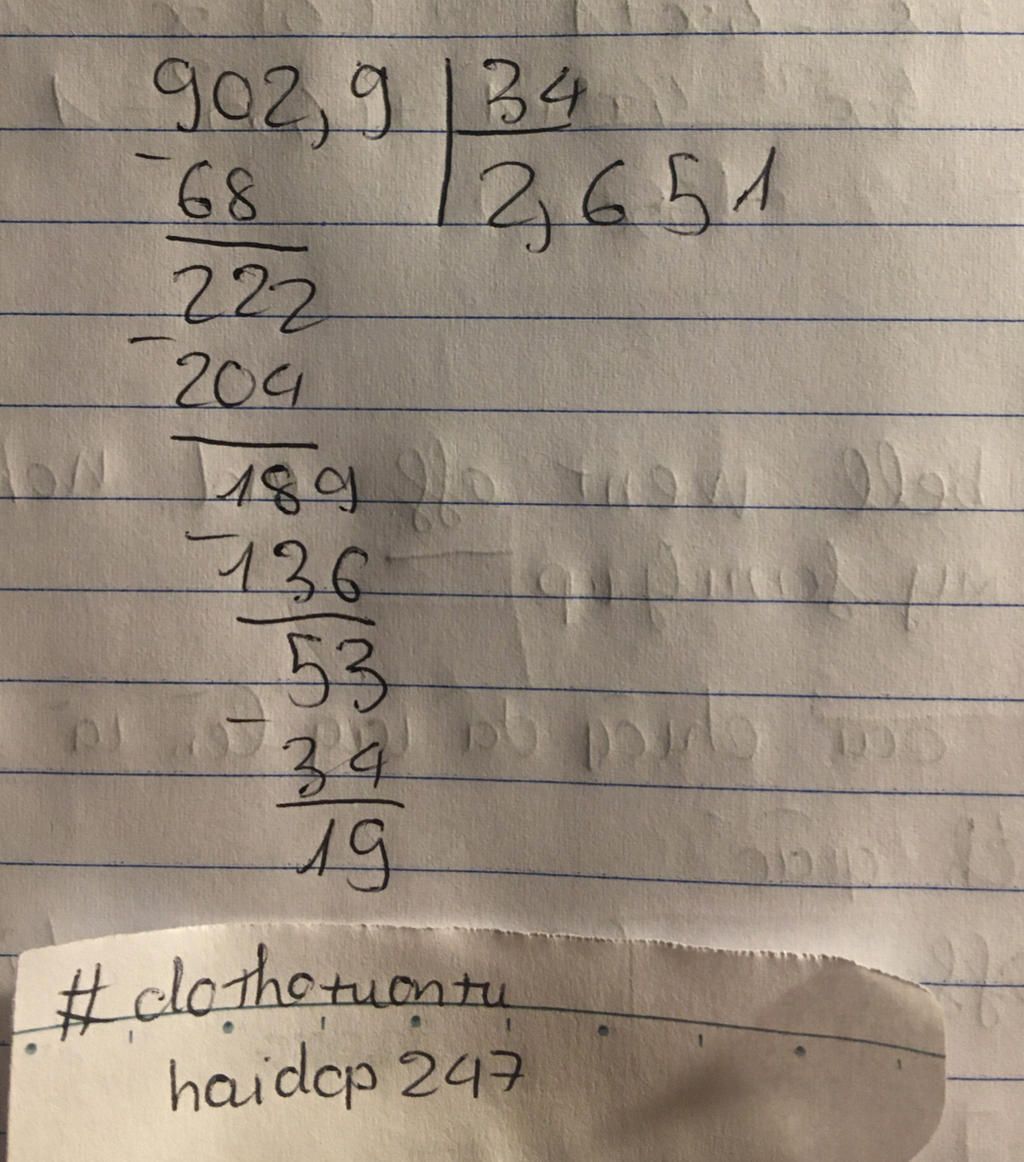 902,9 34
-
68 2,651
222
-
204
189
-
136
53
-
34
19
# clothotuontu
haidcp 247